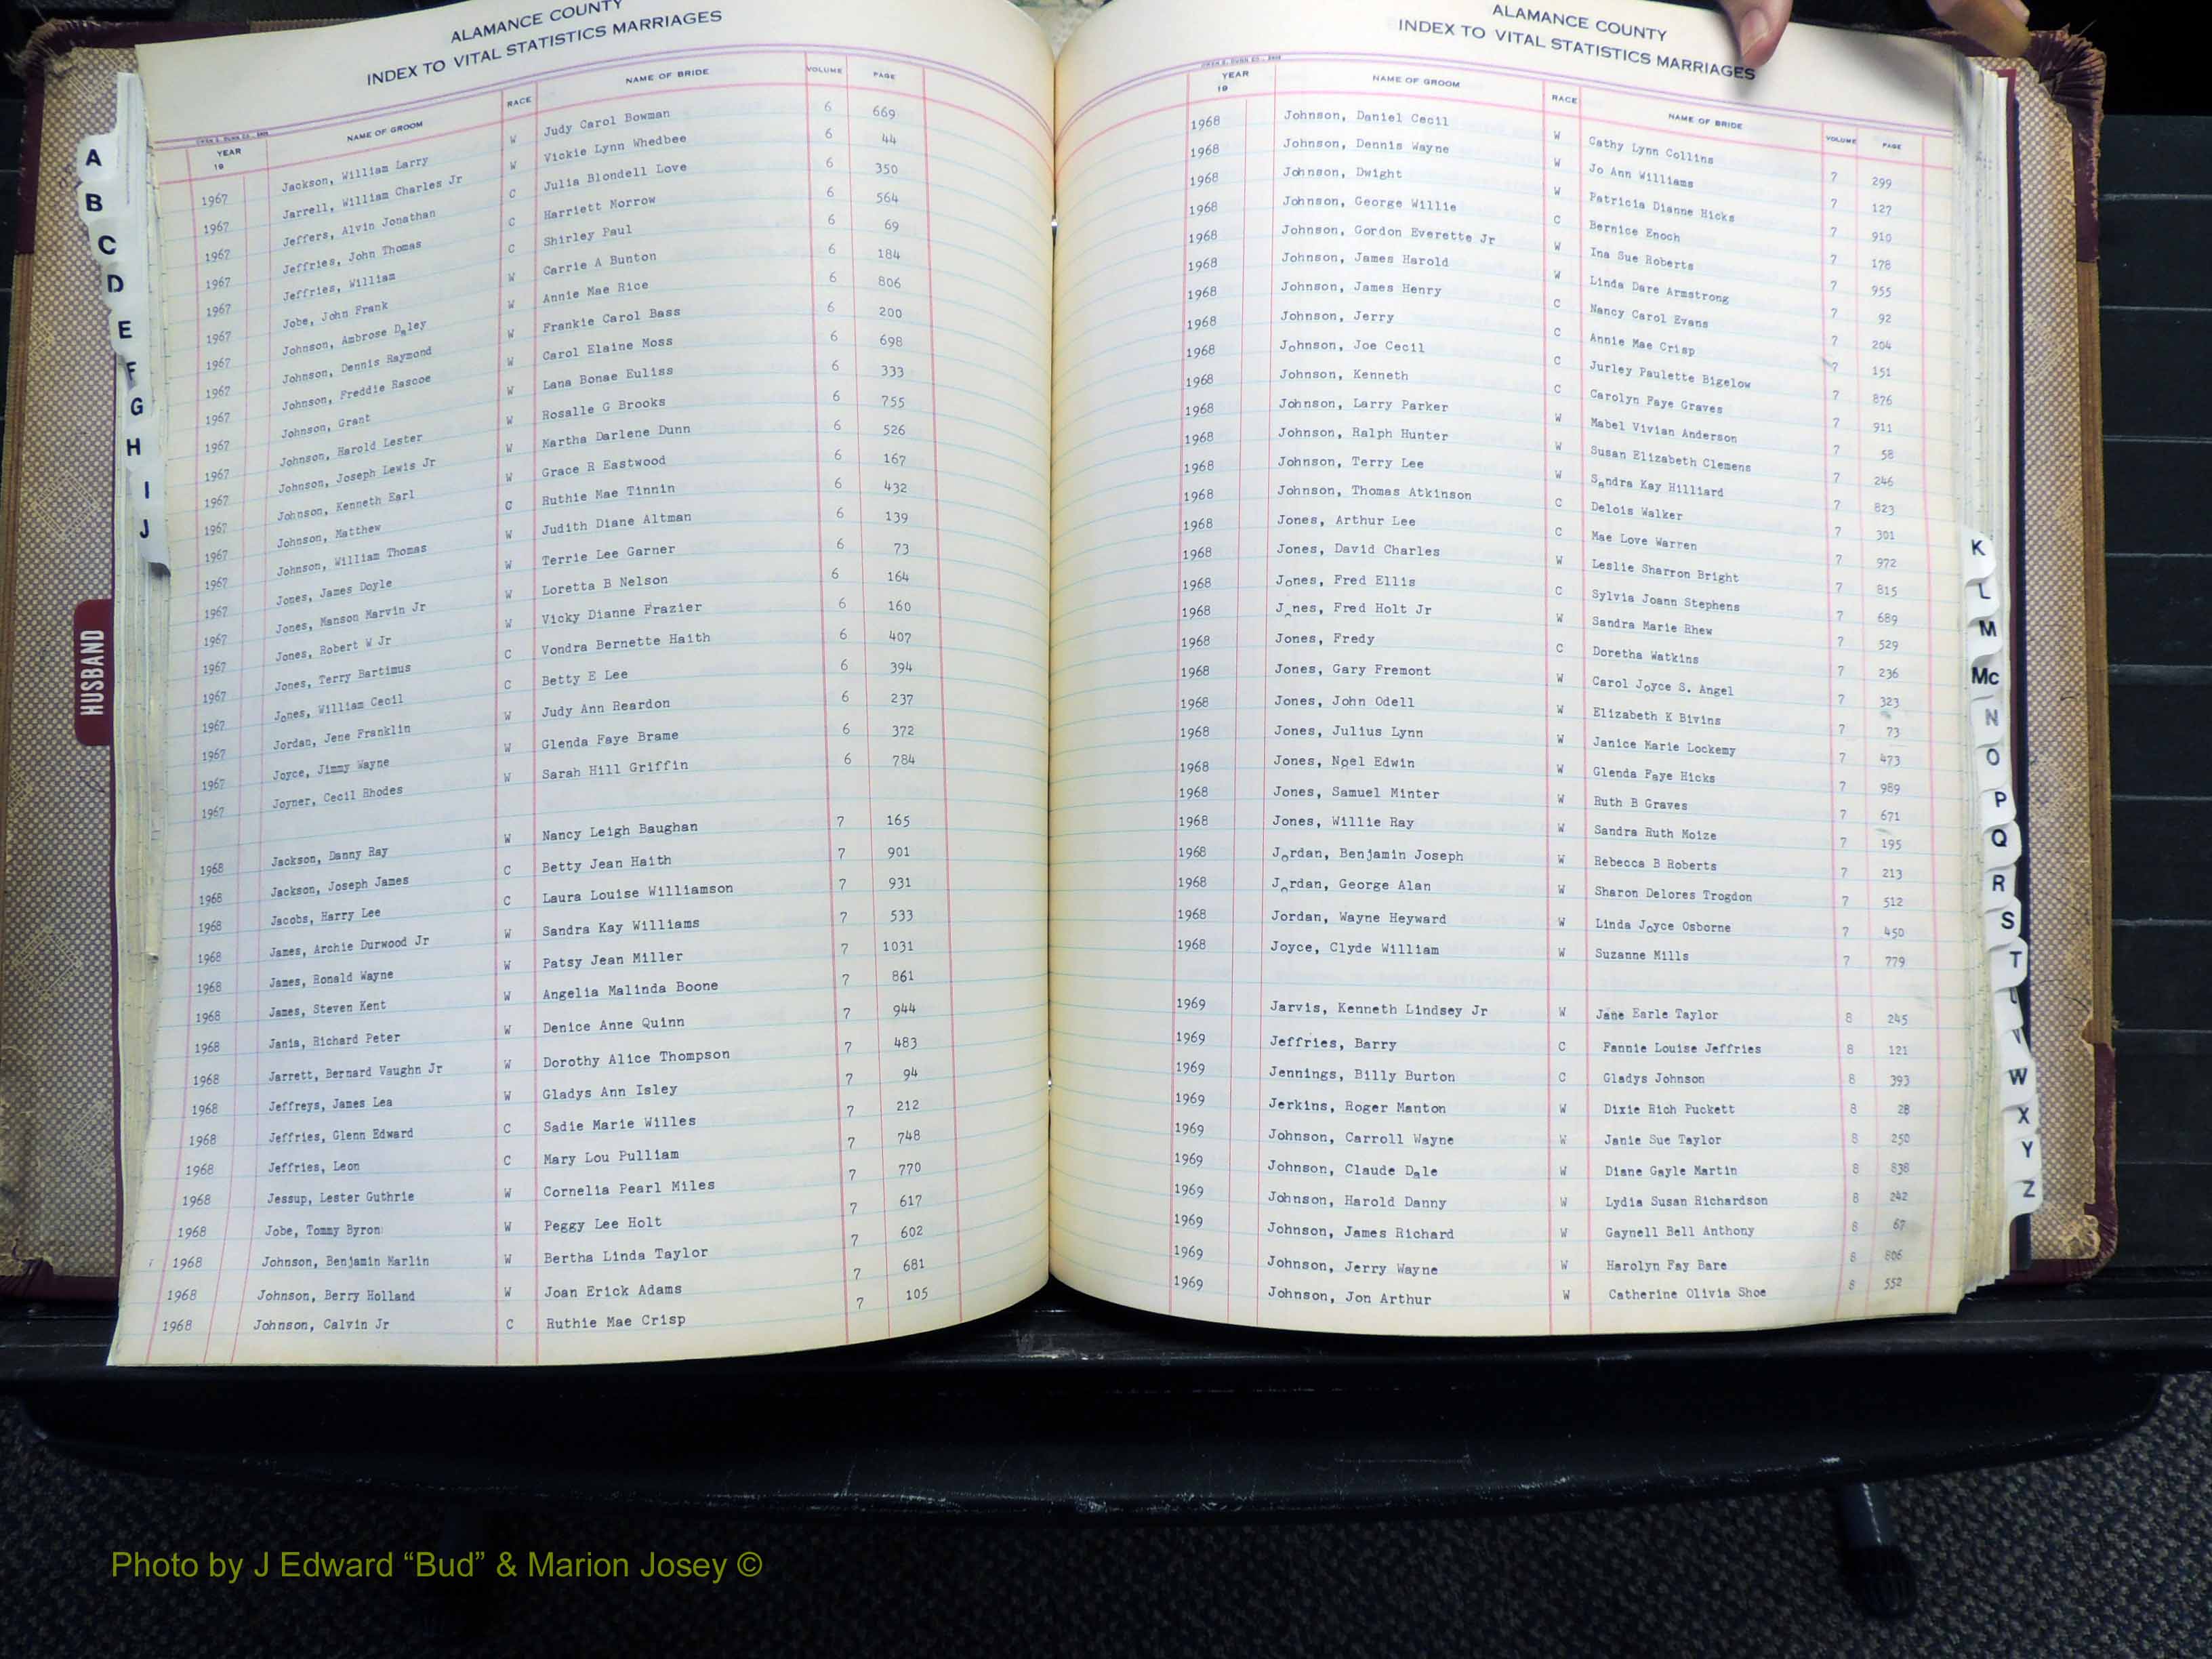 ALAMANCE COUNTY
INDEX TO VITAL STATISTICS MARRIAGES
YEAR 19 NAME OF GROOM RACE NAME OF BRIDE VOLUME PAGE
1967 Jackson, William Larry W Judy Carol Bowman 6 669
1967 Jarrell, William Charles Jr W Vickie Lynn Whedbee 6 44
1967 Jeffers, Alvin Jonathan C Julia Blondell Love 6 350
1967 Jeffries, John Thomas C Harriett Morrow 6 564
1967 Jeffries, William C Shirley Paul 6 69
1967 Jobe, John Frank W Carrie A Bunton 6 184
1967 Johnson, Ambrose Daley W Annie Mae Rice 6 806
1967 Johnson, Dennis Raymond W Frankie Carol Bass 6 200
1967 Johnson, Freddie Rascoe W Carol Elaine Moss 6 698
1967 Johnson, Grant W Lana Bonae Euliss 6 333
1967 Johnson, Harold Lester W Rosalle G Brooks 6 755
1967 Johnson, Joseph Lewis Jr W Martha Darlene Dunn 6 526
1967 Johnson, Kenneth Earl W Grace R Eastwood 6 167
1967 Johnson, Matthew C Ruthie Mae Tinnin 6 432
1967 Johnson, William Thomas W Judith Diane Altman 6 139
1967 Jones, James Doyle W Terrie Lee Garner 6 73
1967 Jones, Manson Marvin Jr W Loretta B Nelson 6 164
1967 Jones, Robert W Jr W Vicky Dianne Frazier 6 160
1967 Jones, Terry Bartimus C Vondra Bernette Haith 6 407
1967 Jones, William Cecil C Betty E Lee 6 394
1967 Jordan, Jene Franklin W Judy Ann Reardon 6 237
1967 Joyce, Jimmy Wayne W Glenda Faye Brame 6 372
1967 Joyner, Cecil Rhodes W Sarah Hill Griffin 6 784
1968 Jackson, Danny Ray W Nancy Leigh Baughan 7 165
1968 Jackson, Joseph James C Betty Jean Haith 7 901
1968 Jacobs, Harry Lee C Laura Louise Williamson 7 931
1968 James, Archie Durwood Jr W Sandra Kay Williams 7 533
1968 James, Ronald Wayne W Patsy Jean Miller 7 1031
1968 James, Steven Kent W Angelia Malinda Boone 7 861
1968 Janis, Richard Peter W Denice Anne Quinn 7 944
1968 Jarrett, Bernard Vaughn Jr W Dorothy Alice Thompson 7 483
1968 Jeffreys, James Lea W Gladys Ann Isley 7 94
1968 Jeffries, Glenn Edward C Sadie Marie Willes 7 212
1968 Jeffries, Leon C Mary Lou Pulliam 7 748
1968 Jessup, Lester Guthrie W Cornelia Pearl Miles 7 770
1968 Jobe, Tommy Byron W Peggy Lee Holt 7 617
1968 Johnson, Benjamin Marlin W Bertha Linda Taylor 7 602
1968 Johnson, Berry Holland W Joan Erick Adams 7 681
1968 Johnson, Calvin Jr C Ruthie Mae Crisp 7 105
A
B
C
D
E
F
G
H
I
J
HUSBAND
ALAMANCE COUNTY
INDEX TO VITAL STATISTICS MARRIAGES
YEAR 19 NAME OF GROOM RACE NAME OF BRIDE VOLUME PAGE
1968 Johnson, Daniel Cecil W Cathy Lynn Collins 7 299
1968 Johnson, Dennis Wayne W Jo Ann Williams 7 127
1968 Johnson, Dwight W Patricia Dianne Hicks 7 910
1968 Johnson, George Willie C Bernice Enoch 7 178
1968 Johnson, Gordon Everette Jr W Ina Sue Roberts 7 955
1968 Johnson, James Harold W Linda Dare Armstrong 7 92
1968 Johnson, James Henry C Nancy Carol Evans 7 204
1968 Johnson, Jerry C Annie Mae Crisp 7 151
1968 Johnson, Joe Cecil C Jurley Paulette Bigelow 7 876
1968 Johnson, Kenneth C Carolyn Faye Graves 7 911
1968 Johnson, Larry Parker W Mabel Vivian Anderson 7 58
1968 Johnson, Ralph Hunter W Susan Elizabeth Clemens 7 246
1968 Johnson, Terry Lee W Sandra Kay Hilliard 7 823
1968 Johnson, Thomas Atkinson C Delois Walker 7 301
1968 Jones, Arthur Lee C Mae Love Warren 7 972
1968 Jones, David Charles W Leslie Sharron Bright 7 815
1968 Jones, Fred Ellis C Sylvia Joann Stephens 7 689
1968 Jones, Fred Holt Jr W Sandra Marie Rhew 7 529
1968 Jones, Fredy C Doretha Watkins 7 236
1968 Jones, Gary Fremont W Carol Joyce S. Angel 7 323
1968 Jones, John Odell W Elizabeth K Bivins 7 73
1968 Jones, Julius Lynn W Janice Marie Lockemy 7 473
1968 Jones, Noel Edwin W Glenda Faye Hicks 7 989
1968 Jones, Samuel Minter W Ruth B Graves 7 671
1968 Jones, Willie Ray W Sandra Ruth Moize 7 195
1968 Jordan, Benjamin Joseph W Rebecca B Roberts 7 213
1968 Jordan, George Alan W Sharon Delores Trogdon 7 512
1968 Jordan, Wayne Heyward W Linda Joyce Osborne 7 450
1968 Joyce, Clyde William W Suzanne Mills 7 779
1969 Jarvis, Kenneth Lindsey Jr W Jane Earle Taylor 8 245
1969 Jeffries, Barry C Fannie Louise Jeffries 8 121
1969 Jennings, Billy Burton C Gladys Johnson 8 393
1969 Jerkins, Roger Manton W Dixie Rich Puckett 8 28
1969 Johnson, Carroll Wayne W Janie Sue Taylor 8 250
1969 Johnson, Claude Dale W Diane Gayle Martin 8 838
1969 Johnson, Harold Danny W Lydia Susan Richardson 8 242
1969 Johnson, James Richard W Gaynell Bell Anthony 8 67
1969 Johnson, Jerry Wayne W Harolyn Fay Bare 8 806
1969 Johnson, Jon Arthur W Catherine Olivia Shoe 8 552
K
L
M
Mc
N
O
P
Q
R
S
T
W
X
Y
Z
Photo by J Edward “Bud” & Marion Josey ©